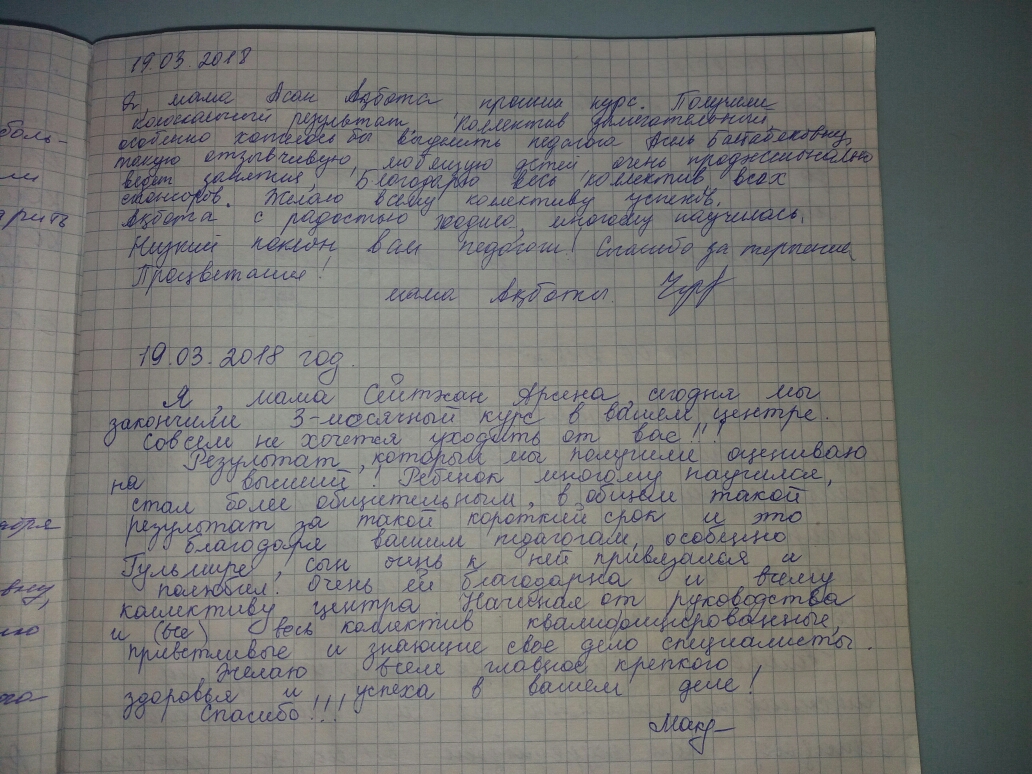 боль-
ми
дарить
добря
вну,
19.03.2018
Я, мама Асан Ақбота прошли курс. Получили
колосальный результат. Коллектив доброжелательный
особенно хотелось бы выделить педагога Асель Балтабековну,
такую отзывчивую, любящую детей очень професионально
ведет занятия, Благодарю весь коллектив всех
спонсоров. Желаю всему колективу успехов.
Ақбота с радостью ходила, многому научилась.
Низкий поклон вам педагоги! Спасибо за терпение
Процветания!
мама Ақботы
19.03.2018 год.
Я, мама Сейтжан Арсена, сегодня мы
закончили 3-месячный курс в вашем центре.
Совсем не хочется уходить от вас!!!
Результат, который мы получили оцениваю
на высший! Ребенок многому научился,
стал более общительным, в общем такой
результат за такой короткий срок и это
благодаря вашим педагогам, особенно
Гульмире, сын очень к ней привязался и
полюбил. Очень ей благодарна и всему
коллективу центра. Начиная от руководства
и (все) весь коллектив квалифицированные,
приветливые и знающие свое дело специалисты.
Желаю всем главное крепкого
здоровья и успеха в вашем деле!
Спасибо!!!